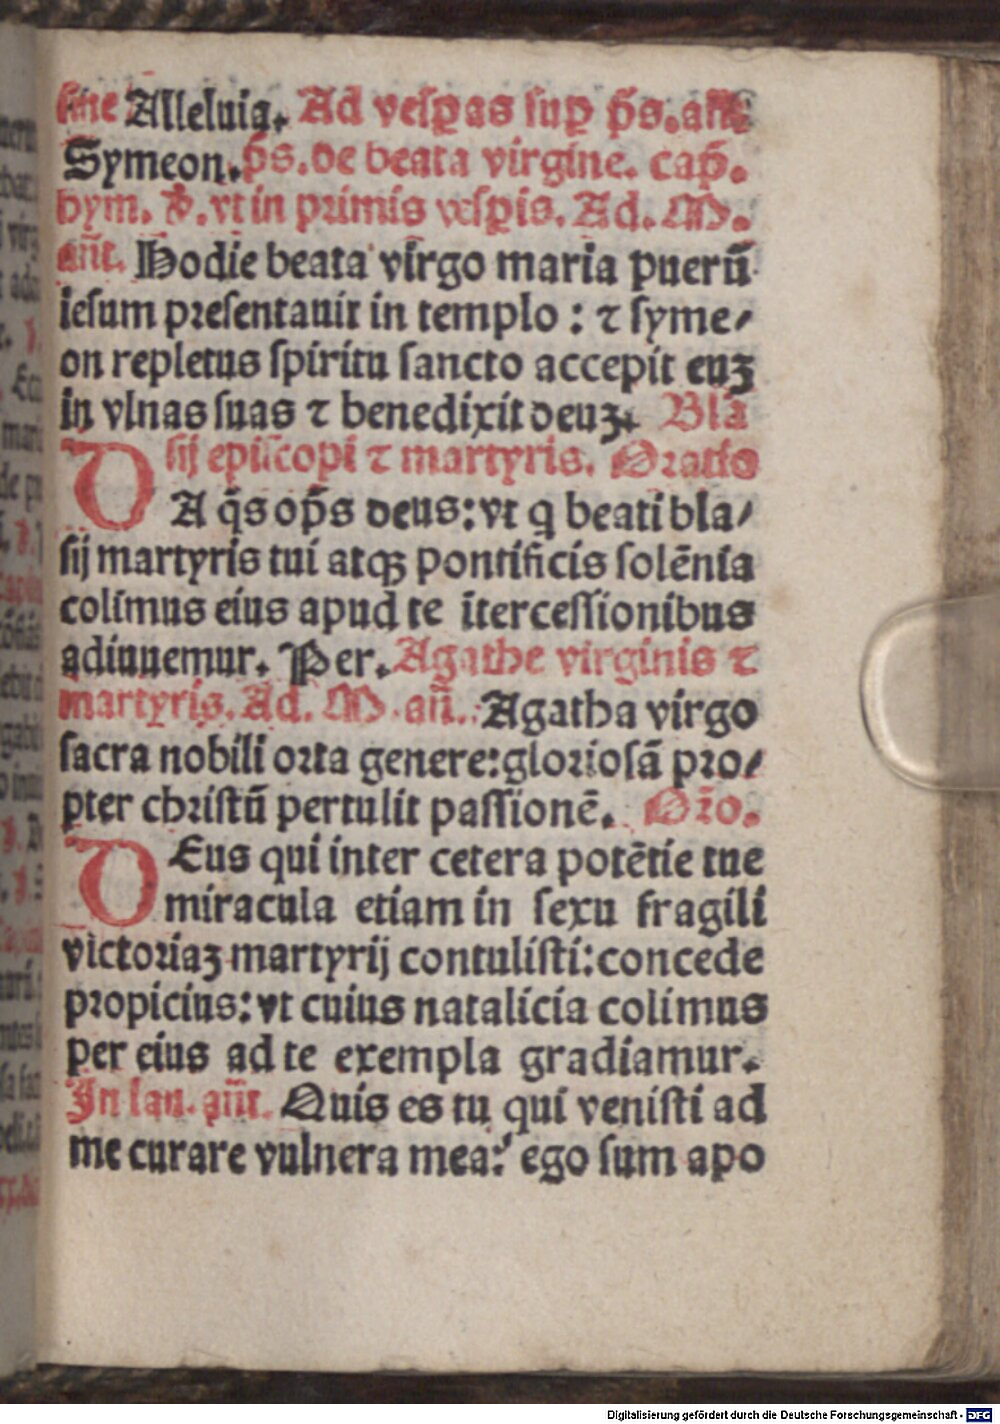 sine Alleluia. Ad vesꝑas suꝑ p̄s. an̄
Symeon. p̄s. de beata virgine. cap̄.
hym. ꝟ. vt in primis vesꝑis. Ad. M.
an̄t. Hodie beata virgo maria puerū
iesum presentauit in templo : ⁊ syme⸗
on repletus spiritu sancto accepit euꝫ
in vlnas suas ⁊ benedixit deuꝫ. Bla
sij episcopi ⁊ martyris. Oratio
DA q̄s op̄s deus: vt q beati bla⸗
sij martyris tui atqꝫ pontificis solēnia
colimus eius apud te ītercessionibus
adiuuemur. Per. Agathe virginis ⁊
martyris. Ad. M. an̄. Agatha virgo
sacra nobili orta genere: gloriosā pro⸗
pter christū pertulit passionē. Or̄o.
DEus qui inter cetera potētie tue
miracula etiam in sexu fragili
victoriaꝫ martyrij contulisti: concede
propicius: vt cuius natalicia colimus
per eius ad te exempla gradiamur.
In lau. an̄t. Quis es tu qui venisti ad
me curare vulnera mea? ego sum apo
Digitalisierung gefördert durch die Deutsche Forschungsgemeinschaft - DFG